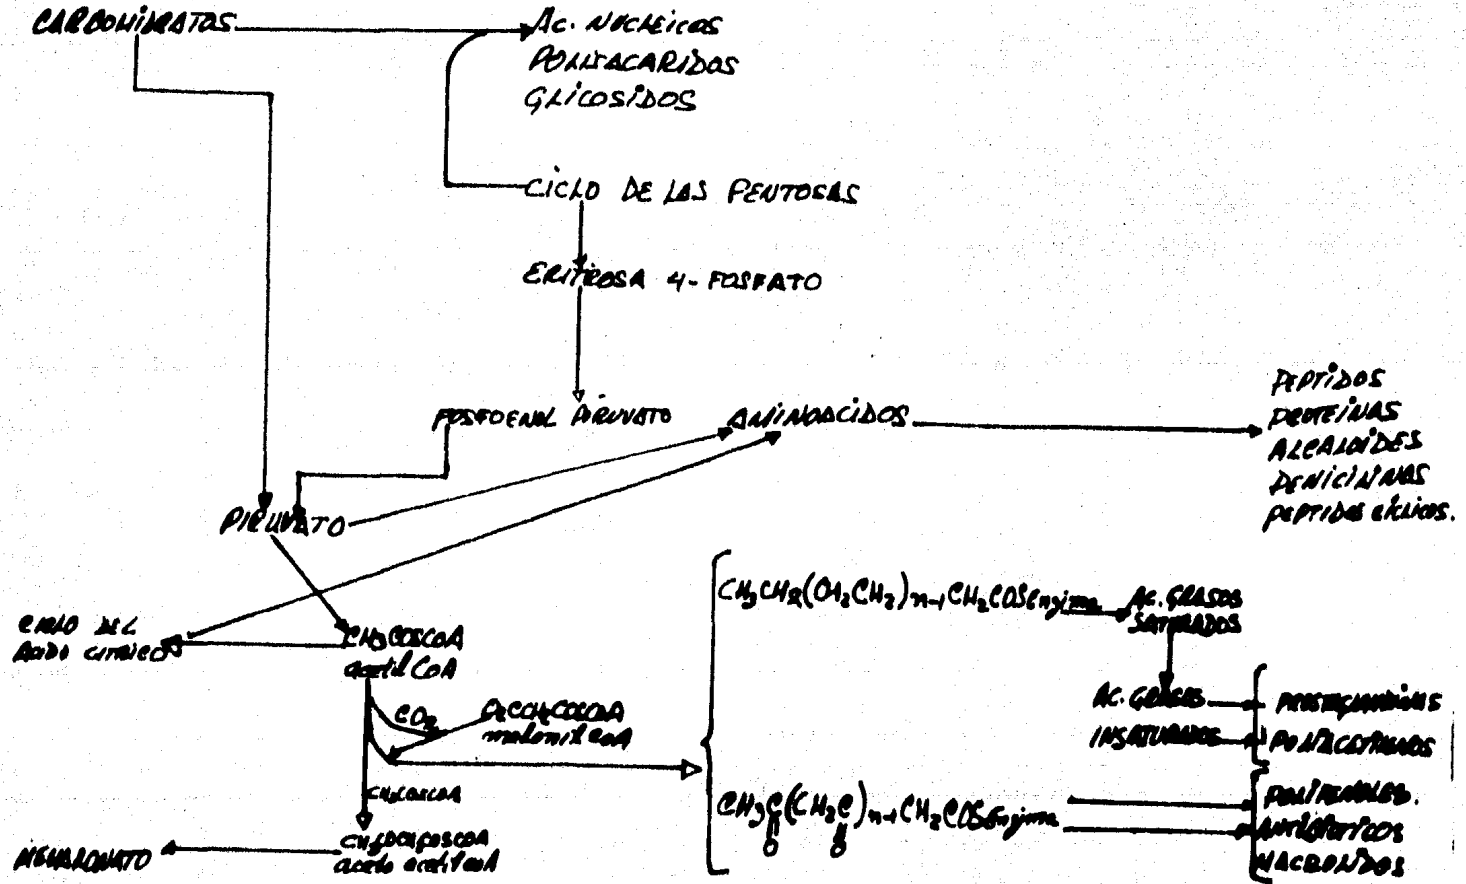 CARBOHIDRATOS
AC. NUCLEICOS
POLISACARIDOS
GLICOSIDOS
CICLO DE LAS PENTOSAS
ERITROSA 4-FOSFATO
FOSFOENOL PIRUVATO
AMINOACIDOS
PEPTIDOS
PROTEINAS
ALCALOIDES
PENICILINAS
PEPTIDOS CICLICOS.
PIRUVATO
CICLO DEL
ACIDO CITRICO
CH3COSCOA
acetil CoA
CO2
malonil CoA
CH3COSCOA
aceto acetil coA
MEVALONATO
CH3CH2(CH2CH2)n-1CH2COSEnzima
AC. GRASOS
SATURADOS
AC. GRASOS
INSATURADOS
PROSTAGLANDINAS
POLIACETILENOS
CH3C(CH2C)n-1CH2COSEnzima
O O
POLIFENOLES.
ANTIBIOTICOS
MACROLIDOS